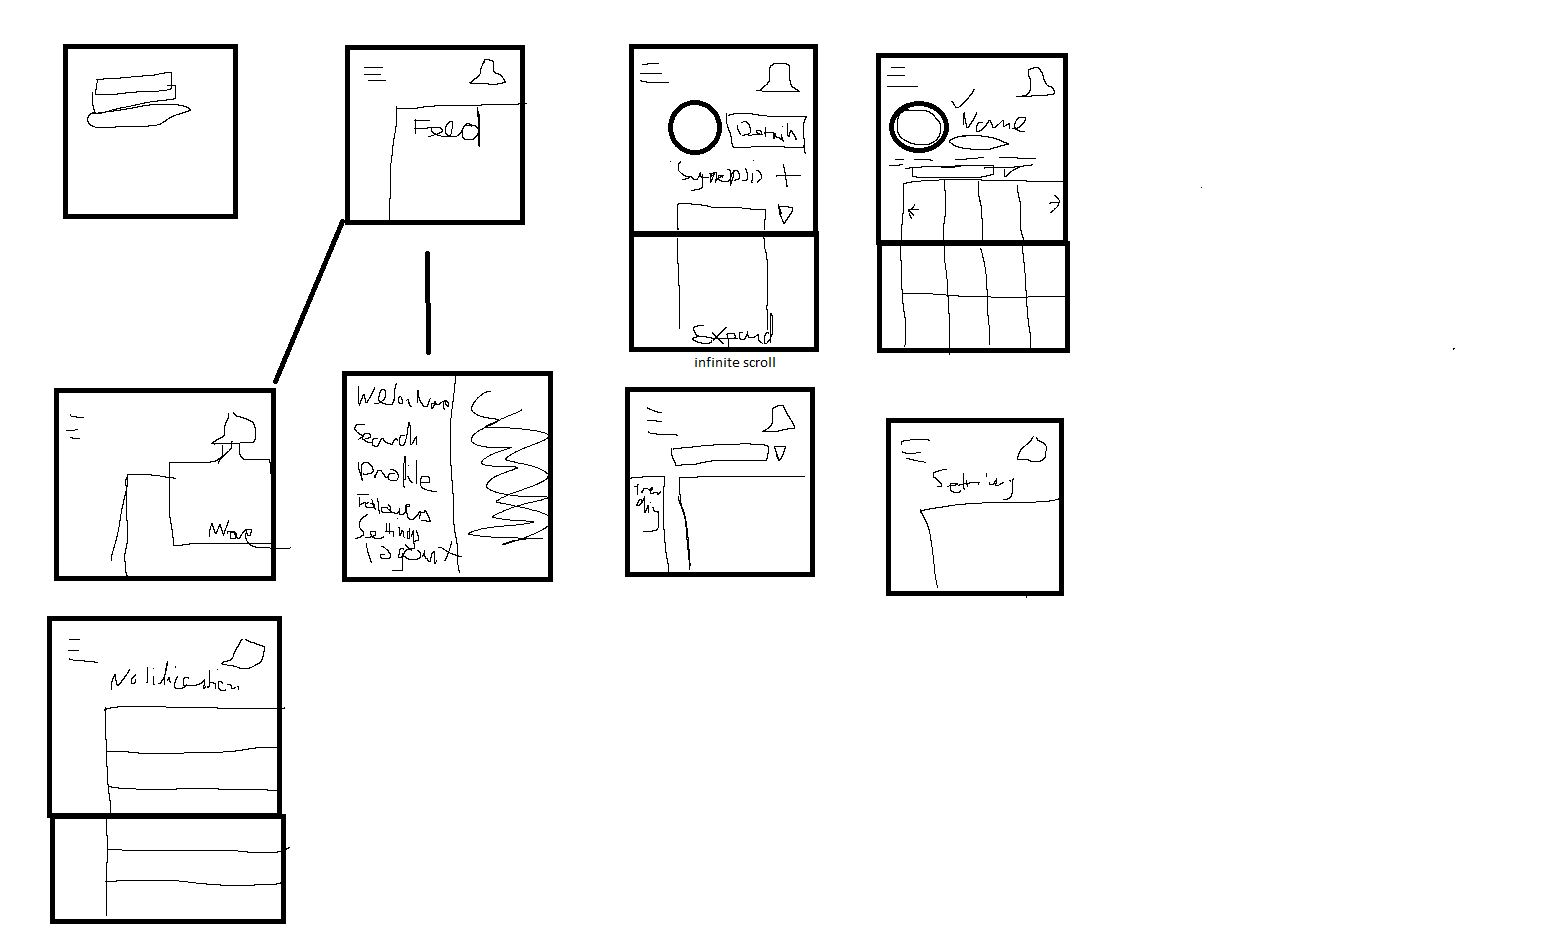 Feed
Details
Synopsis +
Expand
infinite scroll
Name
Search
Profile
Followers
Settings
logout
Trending
Settings
Notification